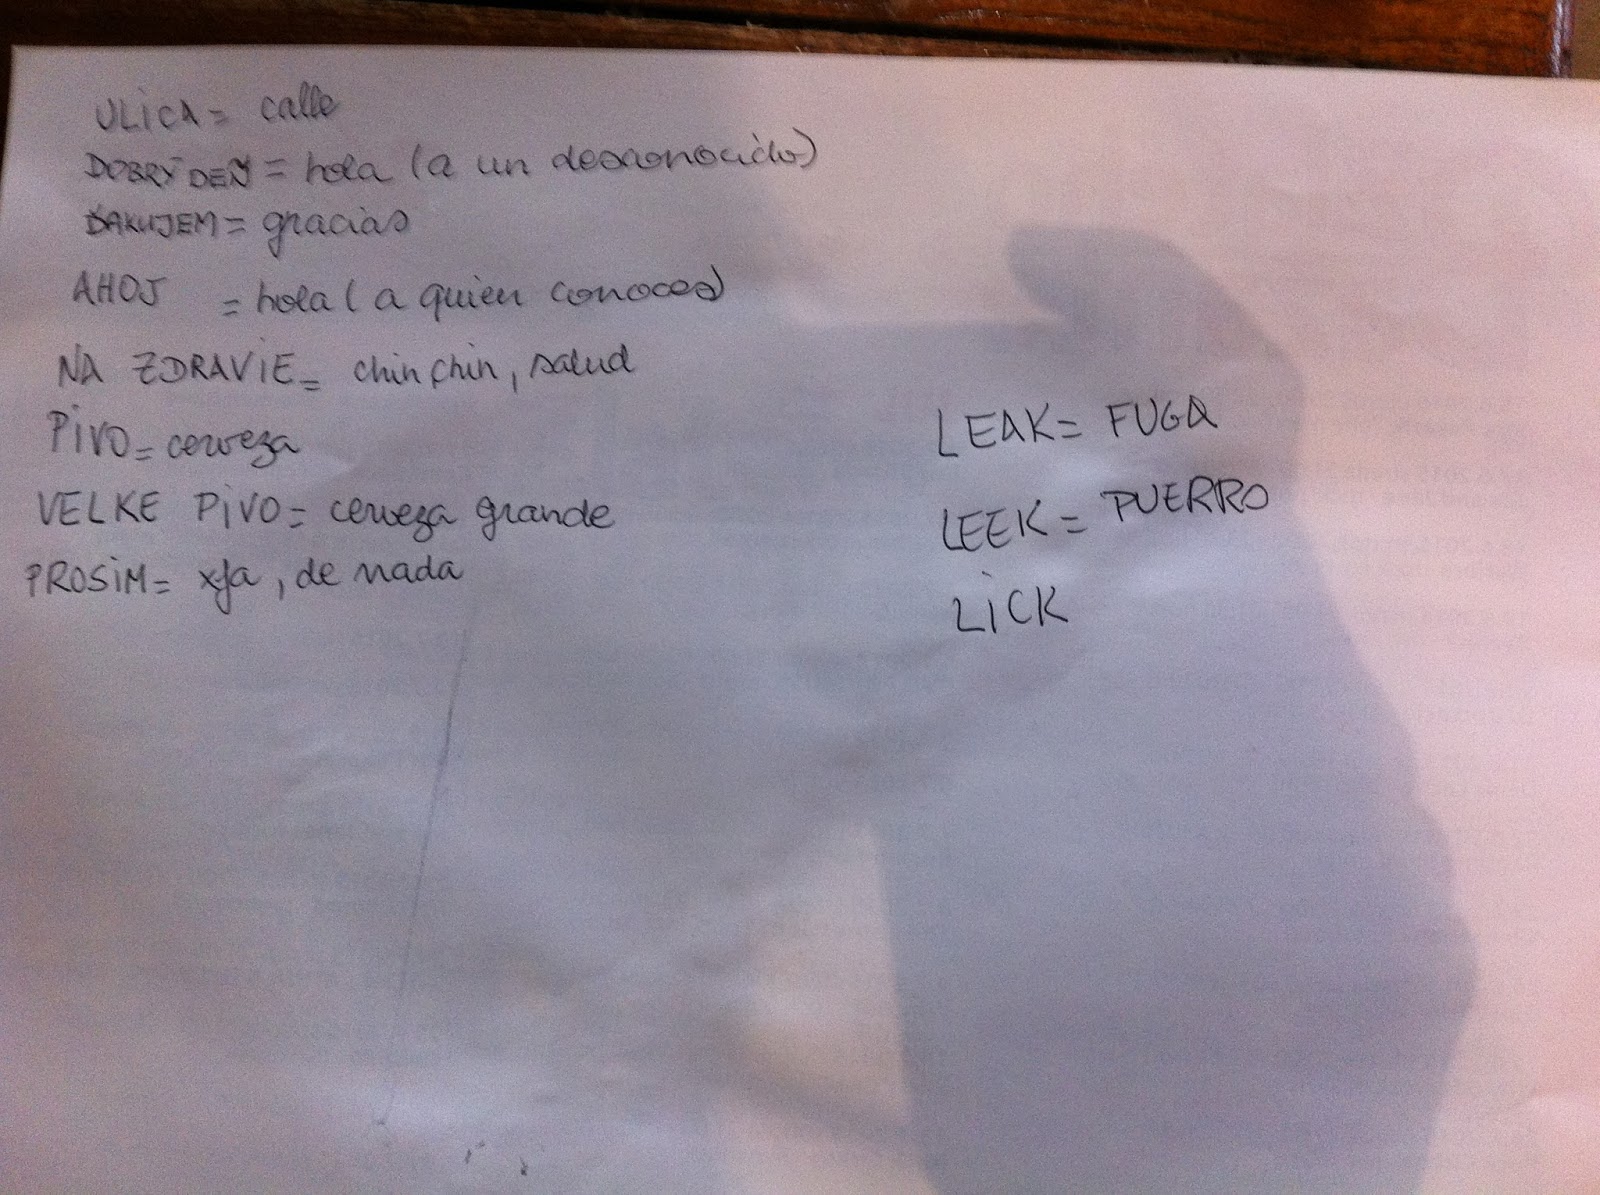 ULiCA = calle
DOBRÝ DEŇ = hola (a un desconocido)
ĎAKUJEM = gracias
AHOJ = hola (a quien conoces)
NA ZDRAViE = chin chin, salud
PiVO = cerveza
VELKE PiVO = cerveza grande
PROSiM = xfa, de nada
LEAK = FUGA
LEEK = PUERRO
LiCK